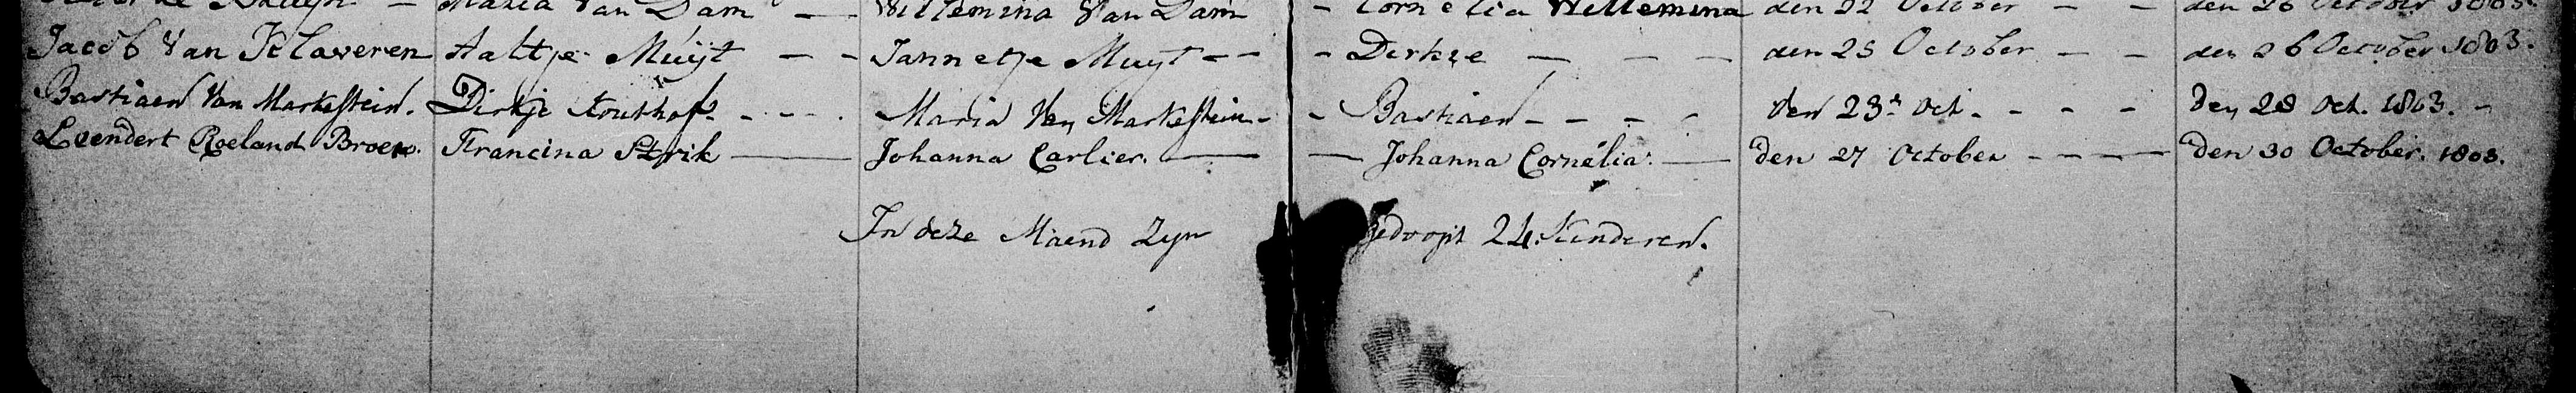 Maria Van Dam — Willemina Van Dam - Cornelia Willemina den 22 October - - den 26 October 1803.
Jacob Van Klaveren Aaltje Muijt - - Jannetje Muijt - - - Dirkje — — — den 25 October — — den 26 October 1803.
Bastiaen Van Markestein. Dirkje - - - . Maria Van Markestein - - Bastiaen - - - - den 23n Oct. - - - - den 28 Oct. 1803. -
Leendert Roeland Broen. Francina Strik — Johanna Carlier. — — Johanna Cornelia. — den 27 October - - - — den 30 October. 1803.
In deze Maend Zyn gedoopt 24 Kinderen.